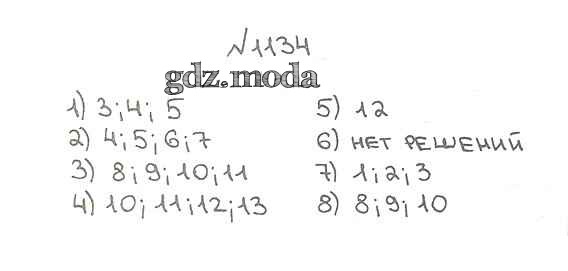 №1134
gdz.moda
1) 3; 4; 5
2) 4; 5; 6; 7
3) 8; 9; 10; 11
4) 10; 11; 12; 13
5) 12
6) НЕТ РЕШЕНИЙ
7) 1; 2; 3
8) 8; 9; 10